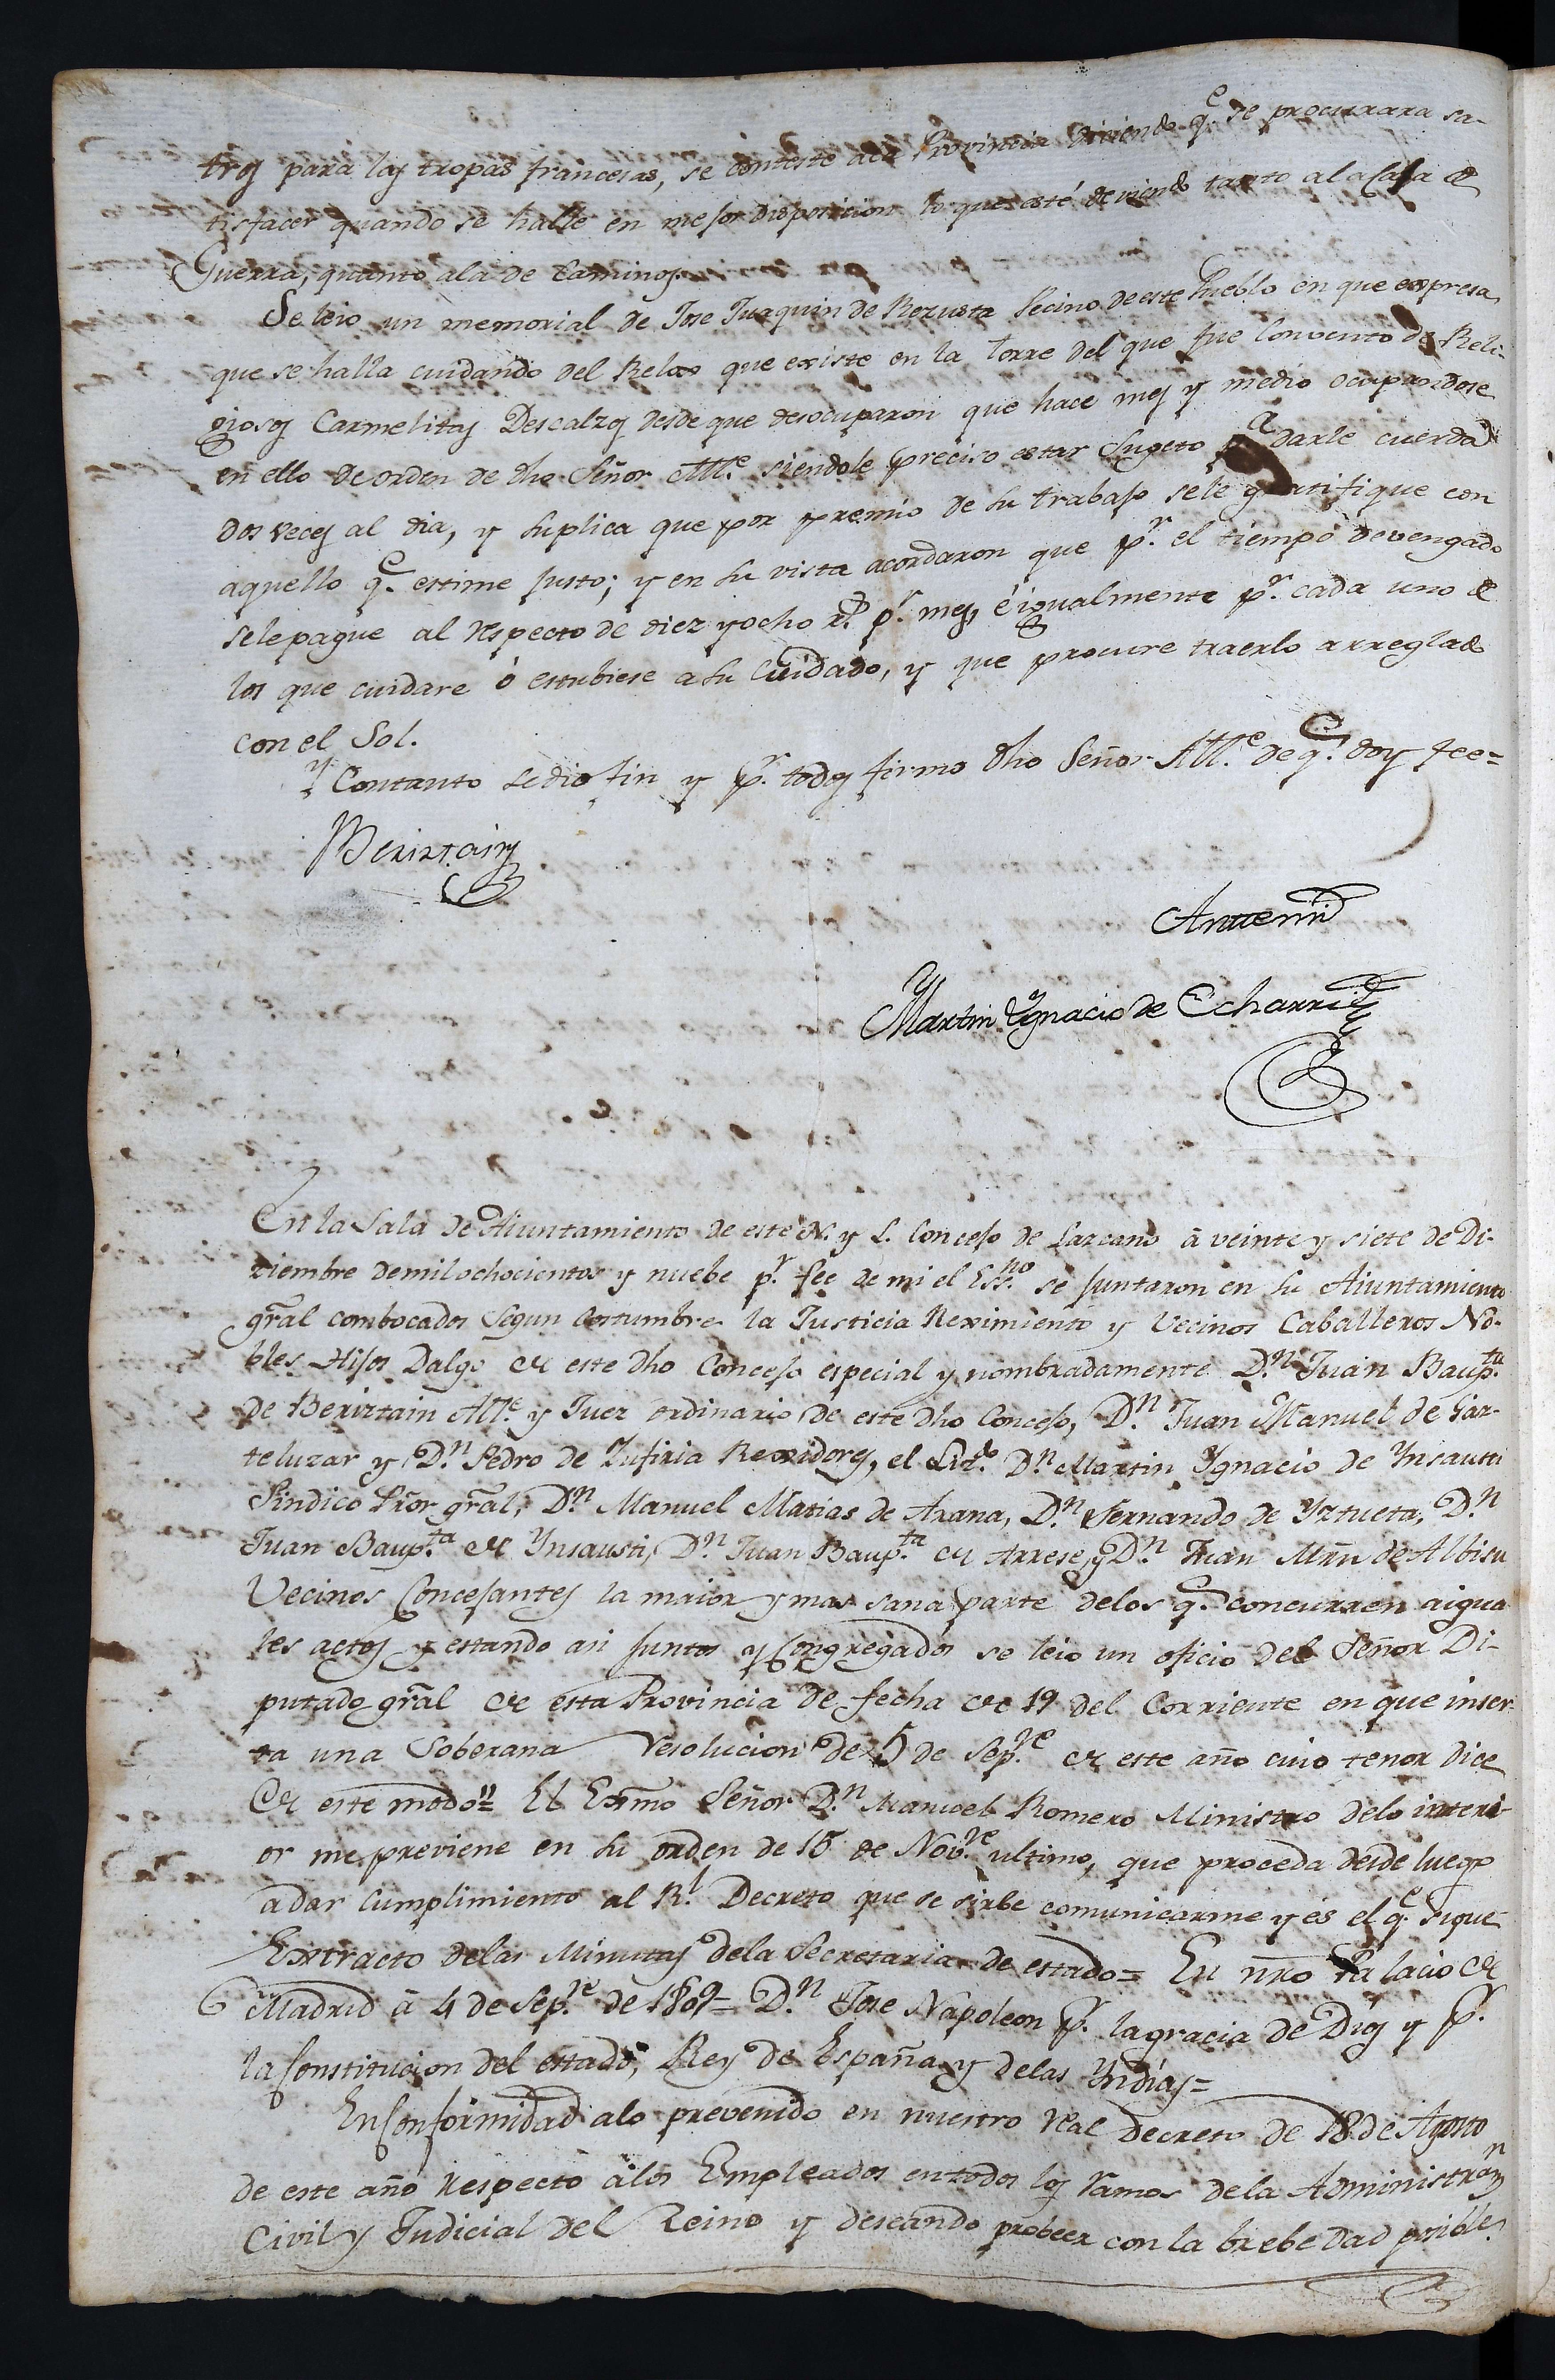 tros para las tropas francesas, se conteste a la Provincia diciendo q.e se procurara sa-
tisfacer quando se halle en mejor disposicion lo que esté deviendo tanto al a Casa de
Guerra, quanto ala de Caminos.
Se leio un memorial de Jose Juaquin de Rezusta Vecino de este Pueblo en que expresa,
que se halla cuidando del Relox que existe en la torre del que fue Convento de Reli-
giosos Carmelitas Descalzos desde que desocuparon que hace mes y medio ocupandose
en ello de orden de dho Señor All.e siendole preciso estar Sugeto a darle cuerda
dos veces al dia, y suplica que por premio de su trabajo se le gratifique con
aquello q.e estime justo; y en su vista acordaron que p.r el tiempo devengado
sele pague al respecto de diez y ocho r.s p.r mes, é igualmente p.r cada uno de
los que cuidare ó estubiese a su Cuidado, y que procure traerlo arreglado
con el Sol.
Y Contanto se dio fin y p.r todos firmo dho Señor All.e de q.e doy fee=
Beriztain
Antemi
Martin Ygnacio de Echarri
En la Sala de Aiuntamiento de este N. y L. Concejo de Lazcano á veinte y siete de Di-
ziembre de mil ochocientos y nuebe p.r fee de mi el Ess.no se juntaron en su Aiuntamiento
gral combocados segun costumbre la Justicia Reximiento y Vecinos Caballeros No-
bles Hijos Dalgo de este dho Concejo especial y nombradamente D.n Juan Baup.ta
de Beriztain All.e y Juez ordinario de este dho Concejo, D.n Juan Manuel de Gar-
teluzar y D.n Pedro de Zufiria Rexidores, el Liz.do D.n Martin Ygnacio de Ynsausti
Sindico Pror gral, D.n Manuel Matias de Arana, D.n Fernando de Yztueta, D.n
Juan Baup.ta de Ynsausti, D.n Juan Baup.ta de Arrese, y D.n Juan Mrn de Albisu
Vecinos Concejantes la maior y mas sana parte delos q.e concurren aigua
les actos y estando asi juntos y Congregados se leio un oficio del Señor Di-
putado gral de esta Provincia de fecha de 19 del Corriente en que inser-
ta una Soberana resolucion de 5 de Sep.re de este año cuio tenor dice
de este modo"= El Exmo Señor D.n Manuel Romero Ministro delo interi-
or me previene en su orden de 15 de Nov.re ultimo, que proceda desde luego
a dar Cumplimiento al R.l Decreto que se sirbe comunicarme y és el q.e sigue
Extracto delas Minutas dela Secretaria de estado= En nro Palacio de
Madrid á 4 de Sep.re de 1809= D.n Jose Napoleon p.r la gracia de Dios y p.r
la Constitucion del estado, Rey de España y delas Yndias=
En Conformidad alo prevenido en nuestro real Decreto de 18 de Agosto
de este año respecto álos Empleados entodos los ramos dela Administra.on
Civil y Judicial del Reino y deseando probeer con la brebedad posible